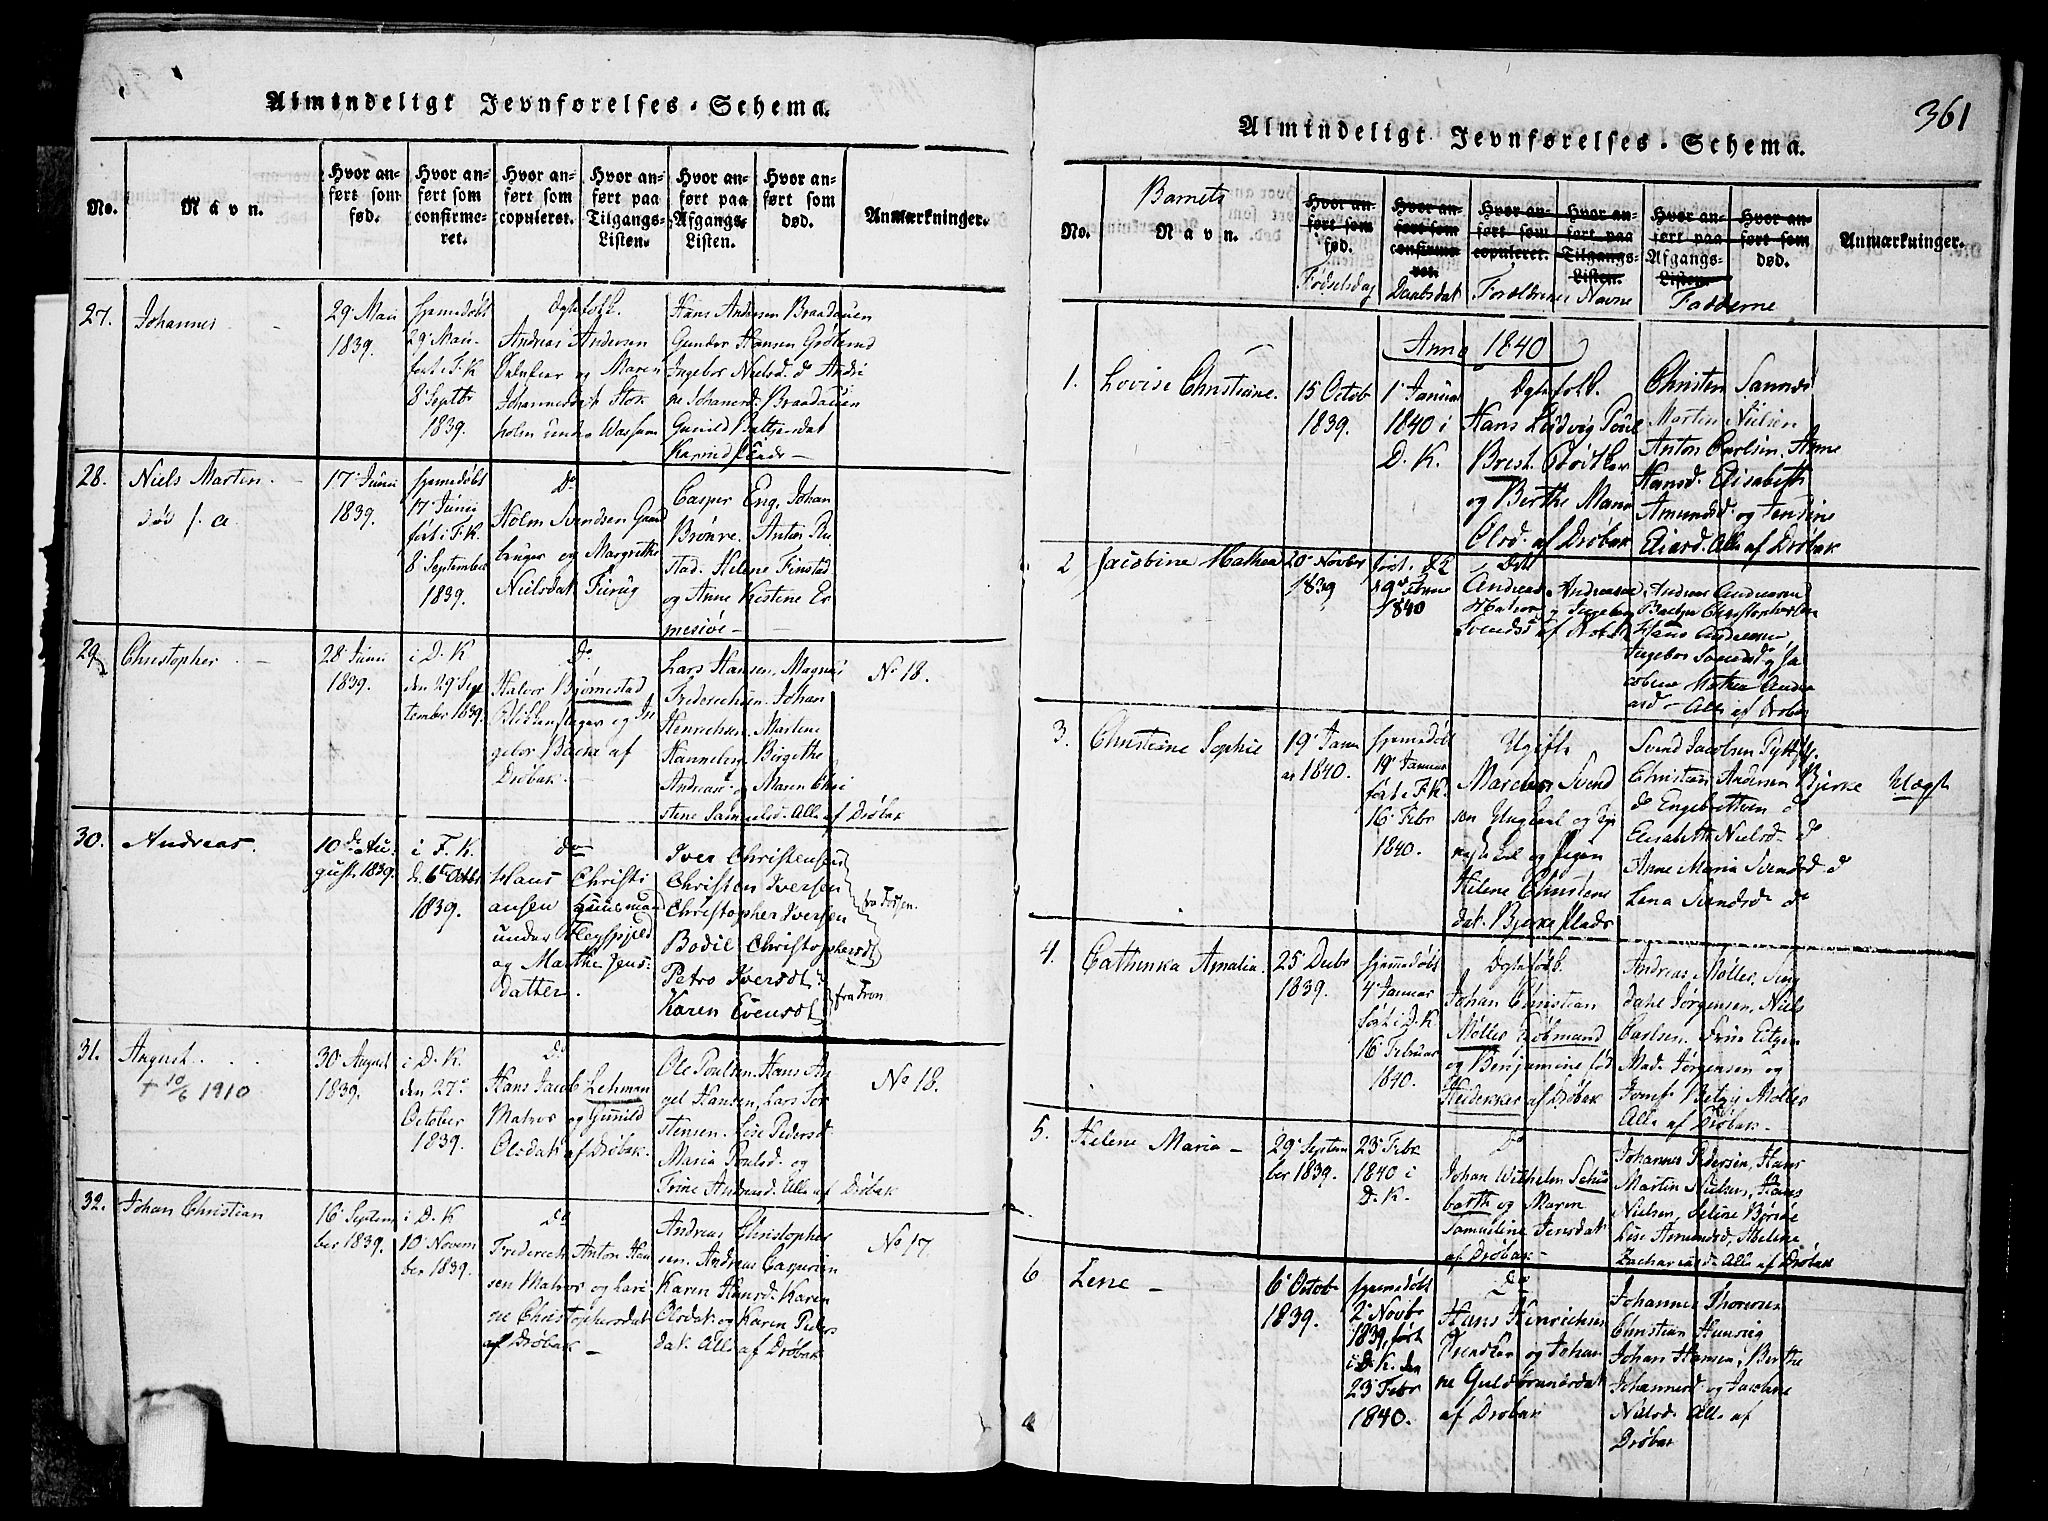 Almindeligt Jevnførelses-Schema.
No.
Navn.
Hvor an-
ført som
fød.
Hvor an-
ført som
confirme-
ret.
Hvor an-
ført som
copuleret.
Hvor an-
ført paa
Tilgangs-
Listen.
Hvor an-
ført paa
Afgangs-
Listen.
Hvor an-
ført som
død.
Anmærkninger.
27.
Johannes
29 Mai
1839.
hjemedøbt
29 Mai
ført i F. K
8 Septbr
1839.
Ægtefolk.
Andreas Andersen
og Maren
Johannesdat
holm under
Hans Andersen Braadauen
Gunder Hansen
Ingebor Nielsd. do Andri
ne Johansd. Braadauen
Gunild
Plads
28.
Niels Martin
død s. a.
17 Junii
1839.
hjemedøbt
17 Junii
ført i F. K.
8 September
1839.
Do
Holm Svendsen Gaard
bruger og Margrethe
Nielsdat
Casper Eng, Johan
Brønre. Anton Ru
stad. Helene Finstad
og Anne Kistine Er
29
Christopher
28 Junii
1839.
i D. K
den 29 Sep
tember 1839.
Do
Halvor Bjørnestad
Blikkenslager og In
gebor Backe af
Drøbak
Lars Hansen, Magnus
Frederichsen. Johan
Henrichsen. Martene
Hanneberg, Birgithe
Andreasd. og Maren Chri
stene Samuelsd. Alle af Drøbak
No 18.
30.
Andreas.
10de Au-
gust. 1839.
i F. K.
d. 6te Octbr
1839.
do
Hans Christi
ansen Huusmand
under
og Marthe Jens-
datter.
Iver Christensen
Christen Iversen
Christopher Iversen
Bodil Christophersdt
Petro Iversdt
Karen Evensdt
fra
fra Fron
31.
August
+ 10/6 1910
30 August
1839.
i D. K.
den 27
October
1839.
Do
Hans Jacob Lehman
Matros og Gunild
Olsdat af Drøbak
Ole Poulsen. Hans An
gel Hansen, Lars Tor
stensen. Lise Pedersd.
Maria Poulsd. og
Trine Andersd. Alle af Drøbak
No 18.
32.
Johan Christian
16 Septem
ber 1839.
i D. K
10 Novem
ber 1839.
Do
Frederich Anton Han
sen Matros og Lari
ne Christophersdat
af Drøbak
Andreas Christopher
sen. Andreas Caspersen
Karen Hansd. Karen
Olsdat og Karen Peders
dat. Alle af Drøbak
No 17.
361
Almindeligt Jevnførelses-Schema.
No.
Barnets
Navn.
Hvor an-
ført som
fød.
Fødselsdag
Hvor an-
ført som
confirme-
ret.
Daabsdat
Hvor an-
ført som
copuleret.
Hvor an-
ført paa
Tilgangs-
Listen.
Forældrenes Navne
Hvor an-
ført paa
Afgangs-
Listen.
Hvor an-
ført som
død.
Fadderne
Anmærkninger.
Anno 1840
1.
Lovise Christiane.
15 Octob
1839.
1 Januar
1840 i
D. K.
Ægtefolk.
Hans Ludvig Poul
og Berthe Maria
Olsd. af Drøbak
Christen Sannes
Martin Nielsen
Anton Carlsen, Anne
Hansd. Elisabeth
Amundsd og
Eliasd. Alle af Drøbak
2
Jacobine Mathea
20 Novbr
1839
først. DK
1840
Do
Andreas Andreasen
Matros og Ingebor
Svendsd af Drøbak
Andreas Andreasen
Christophersen
Hans Andersen,
Ingebor Samuelsd og Ja
cobine Mathea Andre
asd - Alle af Drøbak
3.
Christine Sophie
19 Janu
ar 1840.
hjemedøbt
19 Januar
ført i F. K.
16 Febr
1840.
Ugifte
Marcus Svend
sen Ungkarl og
Pigen
Helene Christens
dat. Bjerke Plads
Svend Jacobsen
Christian Andersen Bjerke
do Engebretsen do
Elisabeth Nielsd. do
Anne Maria Svendsd. do
Lena Svendsd do
Uægt
4.
Cathinka Amalia.
25 Decbr
1839.
hjemedøbt
4 Januar
ført i D. K
16 Februar
1840.
Ægtefolk.
Johan Christian
Møller Kjøbmand
og Benjamine fød
Heidekker af Drøbak
Andreas Møller, Ting
dahl Jørgensen, Niels
Carlsen. Frue
Mad. Jørgensen og
Jomf. Betzy Møller
Alle af Drøbak
5.
Helene Maria
29 Septem
ber 1839.
23 Febr
1840 i
D. K.
Do
Johan Wilhelm Schu
barth og Maren
Samueline Jensdat
af Drøbak
Johannes Pedersen, Hans
Martin Nielsen, Hans
Nielsen, Seline
Lise Amundsd, Helene
Zachariasd. Alle af Drøbak
6
Lene
6 Octob
1839.
hjemedøbt
2 Novbr
1839, ført
i D. K. den
23 Febr
1840.
Do
Hans Hinrichsen
og Johan
ne Guldbrandsdat
af Drøbak
Johannes Thoresen
Christian
Johan Hansen, Berthe
Johannesd og Jacobine
Nielsd. Alle af
Drøbak